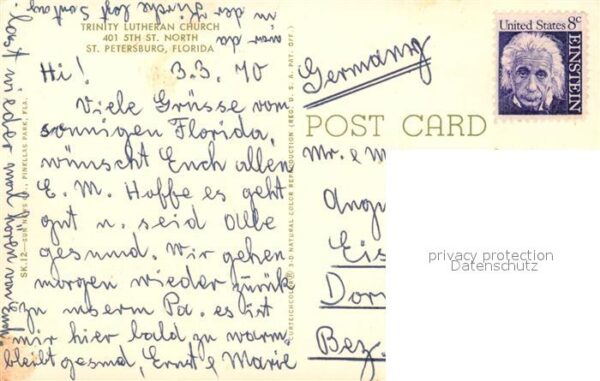 TRINITY LUTHERAN CHURCH
401 5TH ST. NORTH
ST. PETERSBURG, FLORIDA
Hi! 3.3.70
Viele Grüsse vom
sonnigen Florida,
wünscht Euch allen
E. M. Hoffe es geht
gut u. seid alle
gesund. Wir gehen
morgen wieder zurük
zu unserm Pa. es ist
mir hier bald zu warm.
bleibt gesund, Ernst & Marie
Last wieder mal hören von Euch.
in der Kirche
war
SK.12—SUN NEWS CO., PINELLAS PARK, FLA.
CURTEICHCOLOR® 3-D NATURAL COLOR REPRODUCTION (REG. U.S.A. PAT. OFF.)
Germany
United States 8c
EINSTEIN
POST CARD
Mr. & M
Augu
Eis
Dor
Bez.
privacy protection
Datenschutz